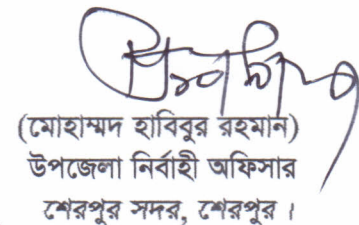 (মোহাম্মদ হাবিবুর রহমান)
উপজেলা নির্বাহী অফিসার
শেরপুর সদর, শেরপুর।